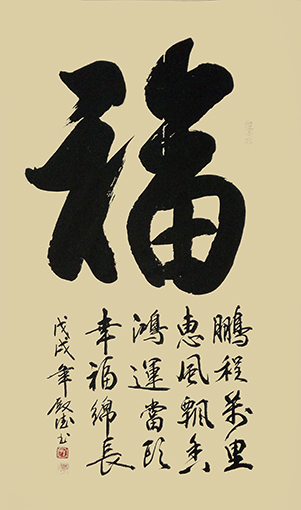 福
鹏程萬里
惠風飄香
鴻運當頭
幸福綿長
戊戌年殿法书